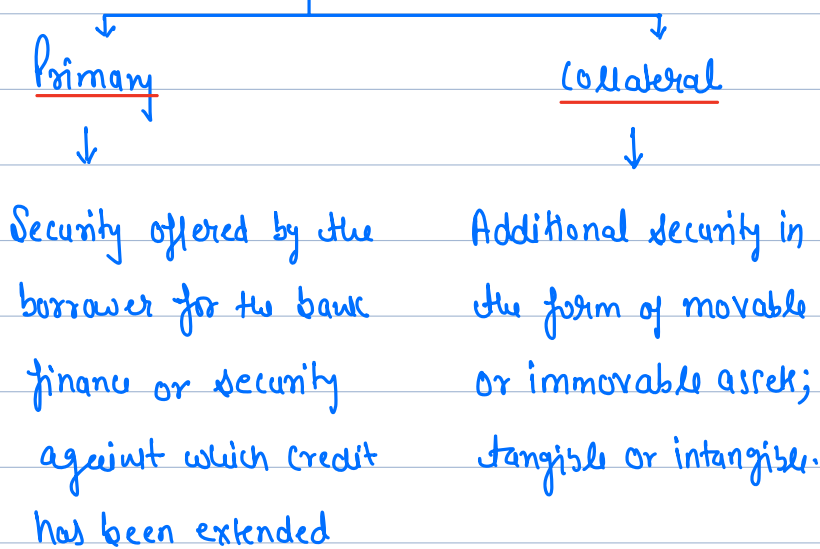 Primary
Security offered by the
borrower for the bank
finance or security
against which credit
has been extended
Collateral
Additional security in
the form of movable
or immovable assets;
tangible or intangible.